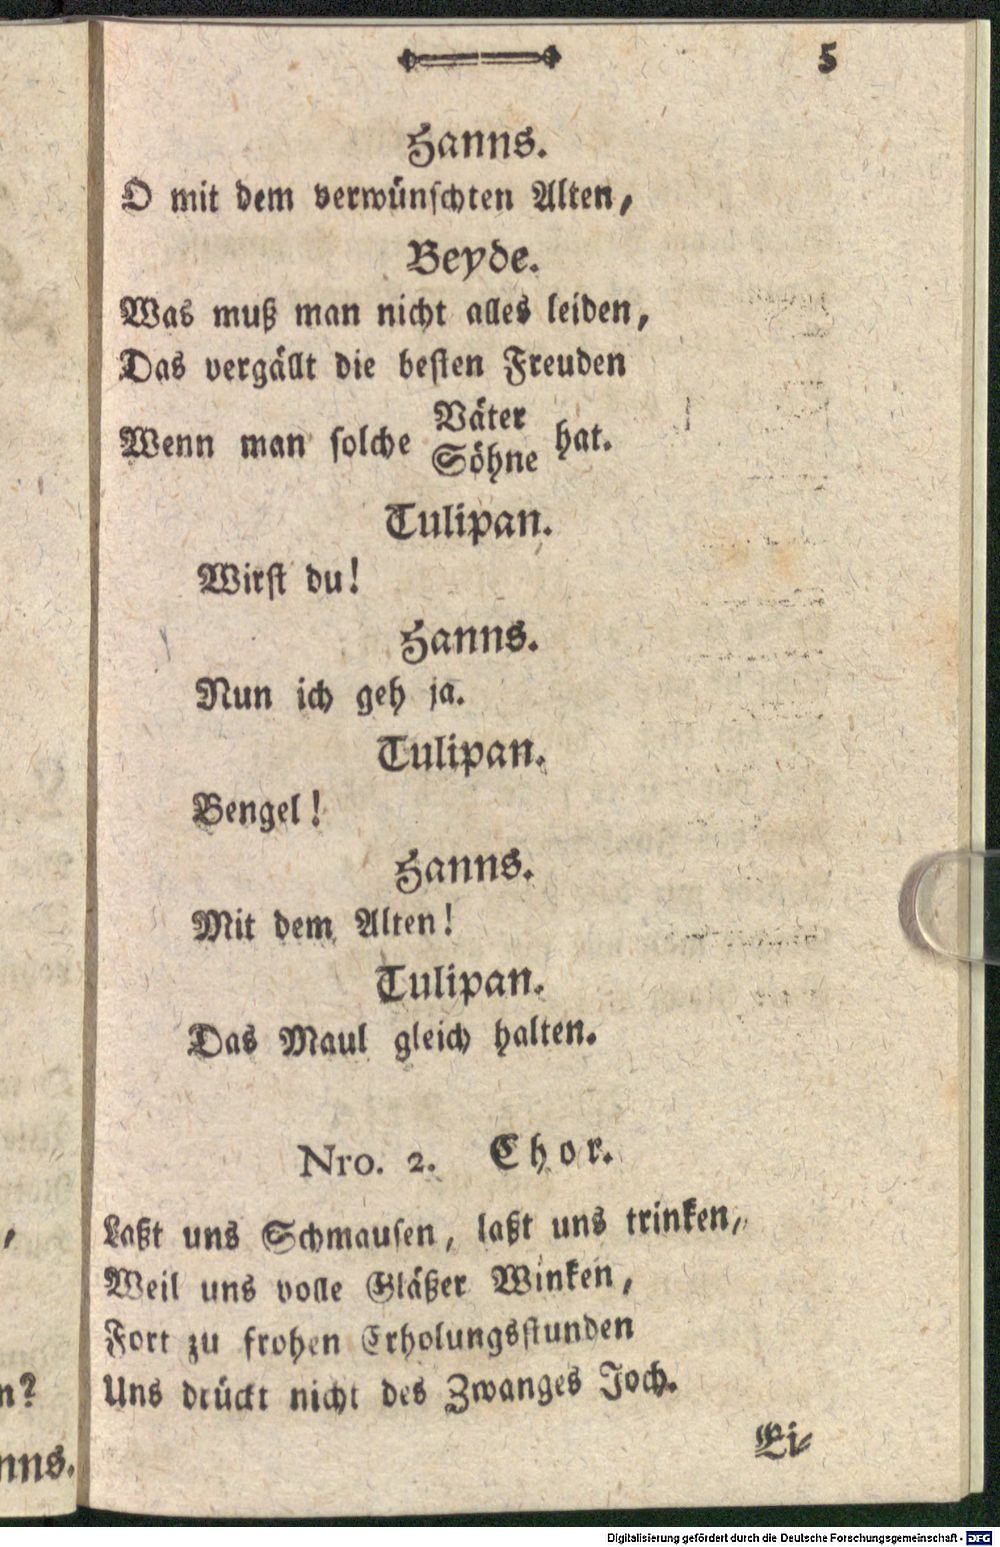 5
Hanns.
O mit dem verwünschten Alten,
Beyde.
Was muß man nicht alles leiden,
Das vergällt die besten Freuden
Wenn man solche Väter hat.
Söhne
Tulipan.
Wirst du!
Hanns.
Nun ich geh ja.
Tulipan.
Bengel!
Hanns.
Mit dem Alten!
Tulipan.
Das Maul gleich halten.
Nro. 2. Chor.
Laßt uns Schmausen, laßt uns trinken,
Weil uns volle Gläßer Winken,
Fort zu frohen Erholungsstunden
Uns drückt nicht des Zwanges Joch.
Ei-
n?
nns.
Digitalisierung gefördert durch die Deutsche Forschungsgemeinschaft - DFG